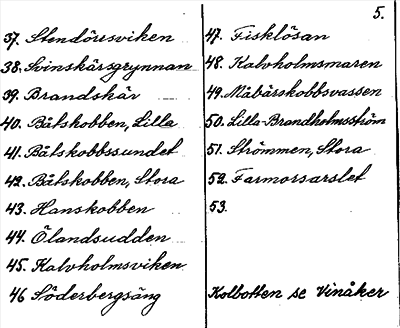 5.
37. Stendörsviken
38. Svinskärsgrynnan
39. Brandskär
40. Båtskobben, Lilla
41. Båtskobbssundet
42. Båtskobben, Stora
43. Hanskobben
44. Ölandsudden
45. Kalvholmsviken
46 Söderbergsäng
47. Fisklösan
48. Kalvholmsmaren
49. Måbärskobbsvassen
50. Lilla Brandholmsström
51. Strömmen, Stora
52. Farmorsarslet
53.
Kolbotten se Vinåker